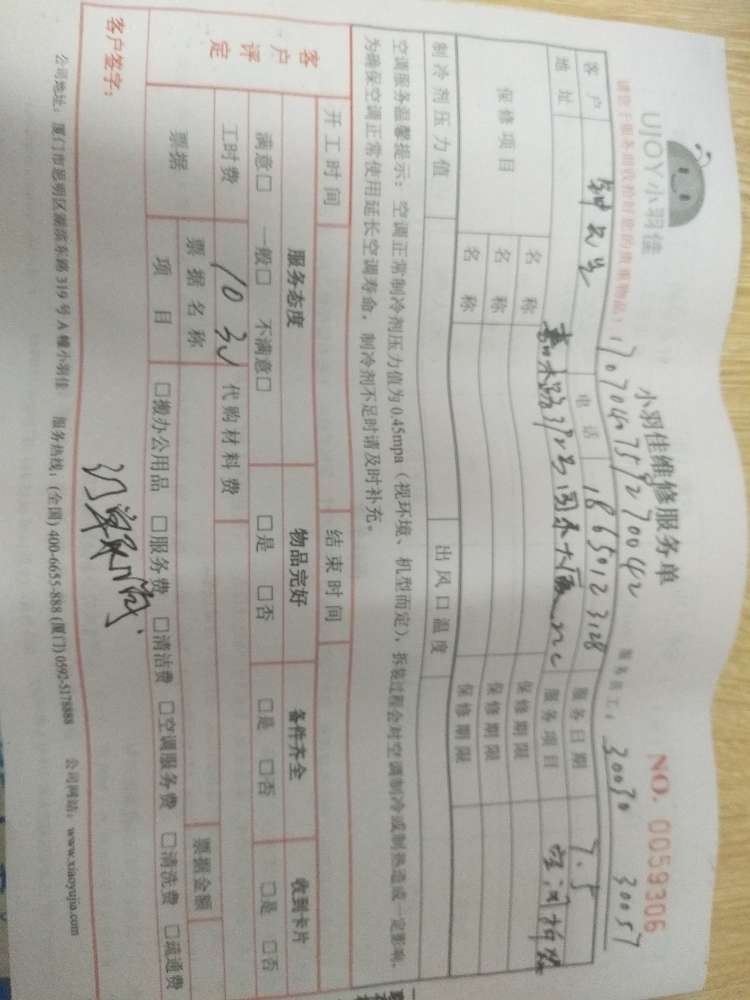 UJOY小羽佳
小羽佳维修服务单
NO. 0059306
请您于服务前收拾好您的贵重物品!
1707040759270042
服务员工: 30030 30057
客户 钟先生 电话 18650123128 服务日期 7.5
地址 服务项目
保修项目 名称 保修期限
名称 保修期限
名称 保修期限
制冷剂压力值 出风口温度
空调服务温馨提示: 空调正常制冷剂压力值为0.45mpa (视环境、机型而定), 拆装过程会对空调制冷或制热造成一定影响,
为确保空调正常使用延长空调寿命, 制冷剂不足时请及时补充。
开工时间 结束时间
客户评定 服务态度 物品完好 备件齐全 收到卡片
满意□ 一般□ 不满意□ □是 □否 □是 □否 □是 □否
工时费 代购材料费
票据 票据名称 票据金额
项目 □搬办公用品 □服务费 □清洁费 □空调服务费 □清洗费 □疏通费
客户签字:
公司地址: 厦门市思明区湖滨东路319号A幢小羽佳 服务热线: (全国) 400-6655-888 (厦门) 0592-5178888 公司网站: www.xiaoyujia.com